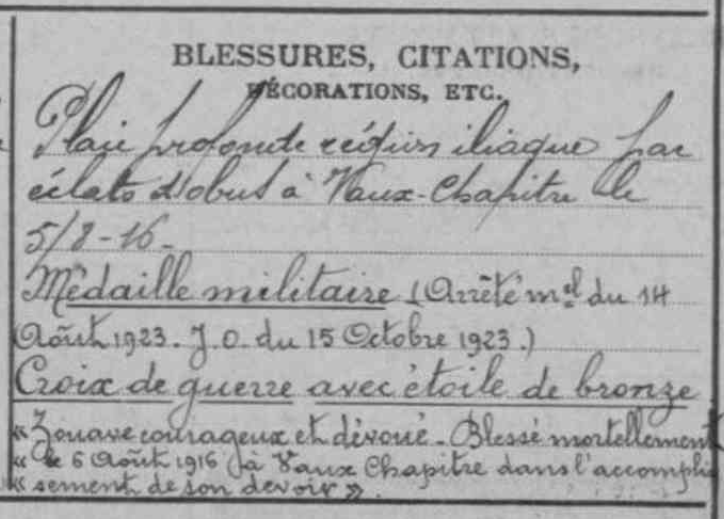 BLESSURES, CITATIONS,
DÉCORATIONS, ETC.
Plaie profonde région iliaque par
éclats d'obus à Vaux-Chapitre le
5/8-16-
Médaille militaire (Arrêté mel du 14
Août 1923. J.O. du 15 Octobre 1923.)
Croix de guerre avec étoile de bronze
« Zouave courageux et dévoué - Blessé mortellement
« le 6 Août 1916 à Vaux Chapitre dans l'accomplis
« sement de son devoir ».